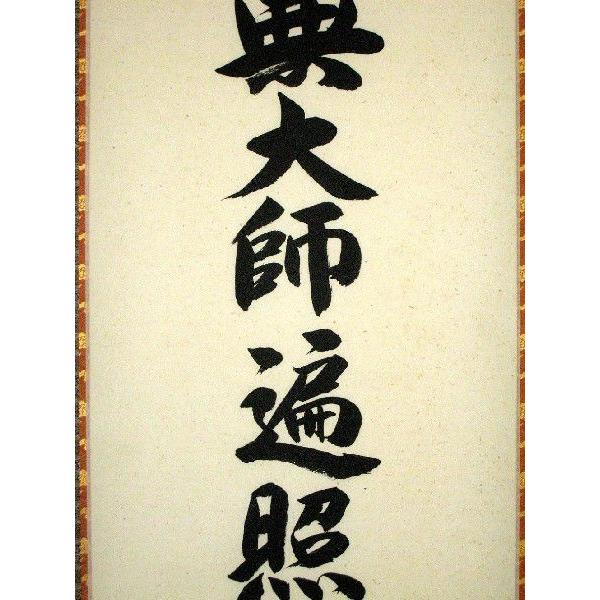 無大師遍照